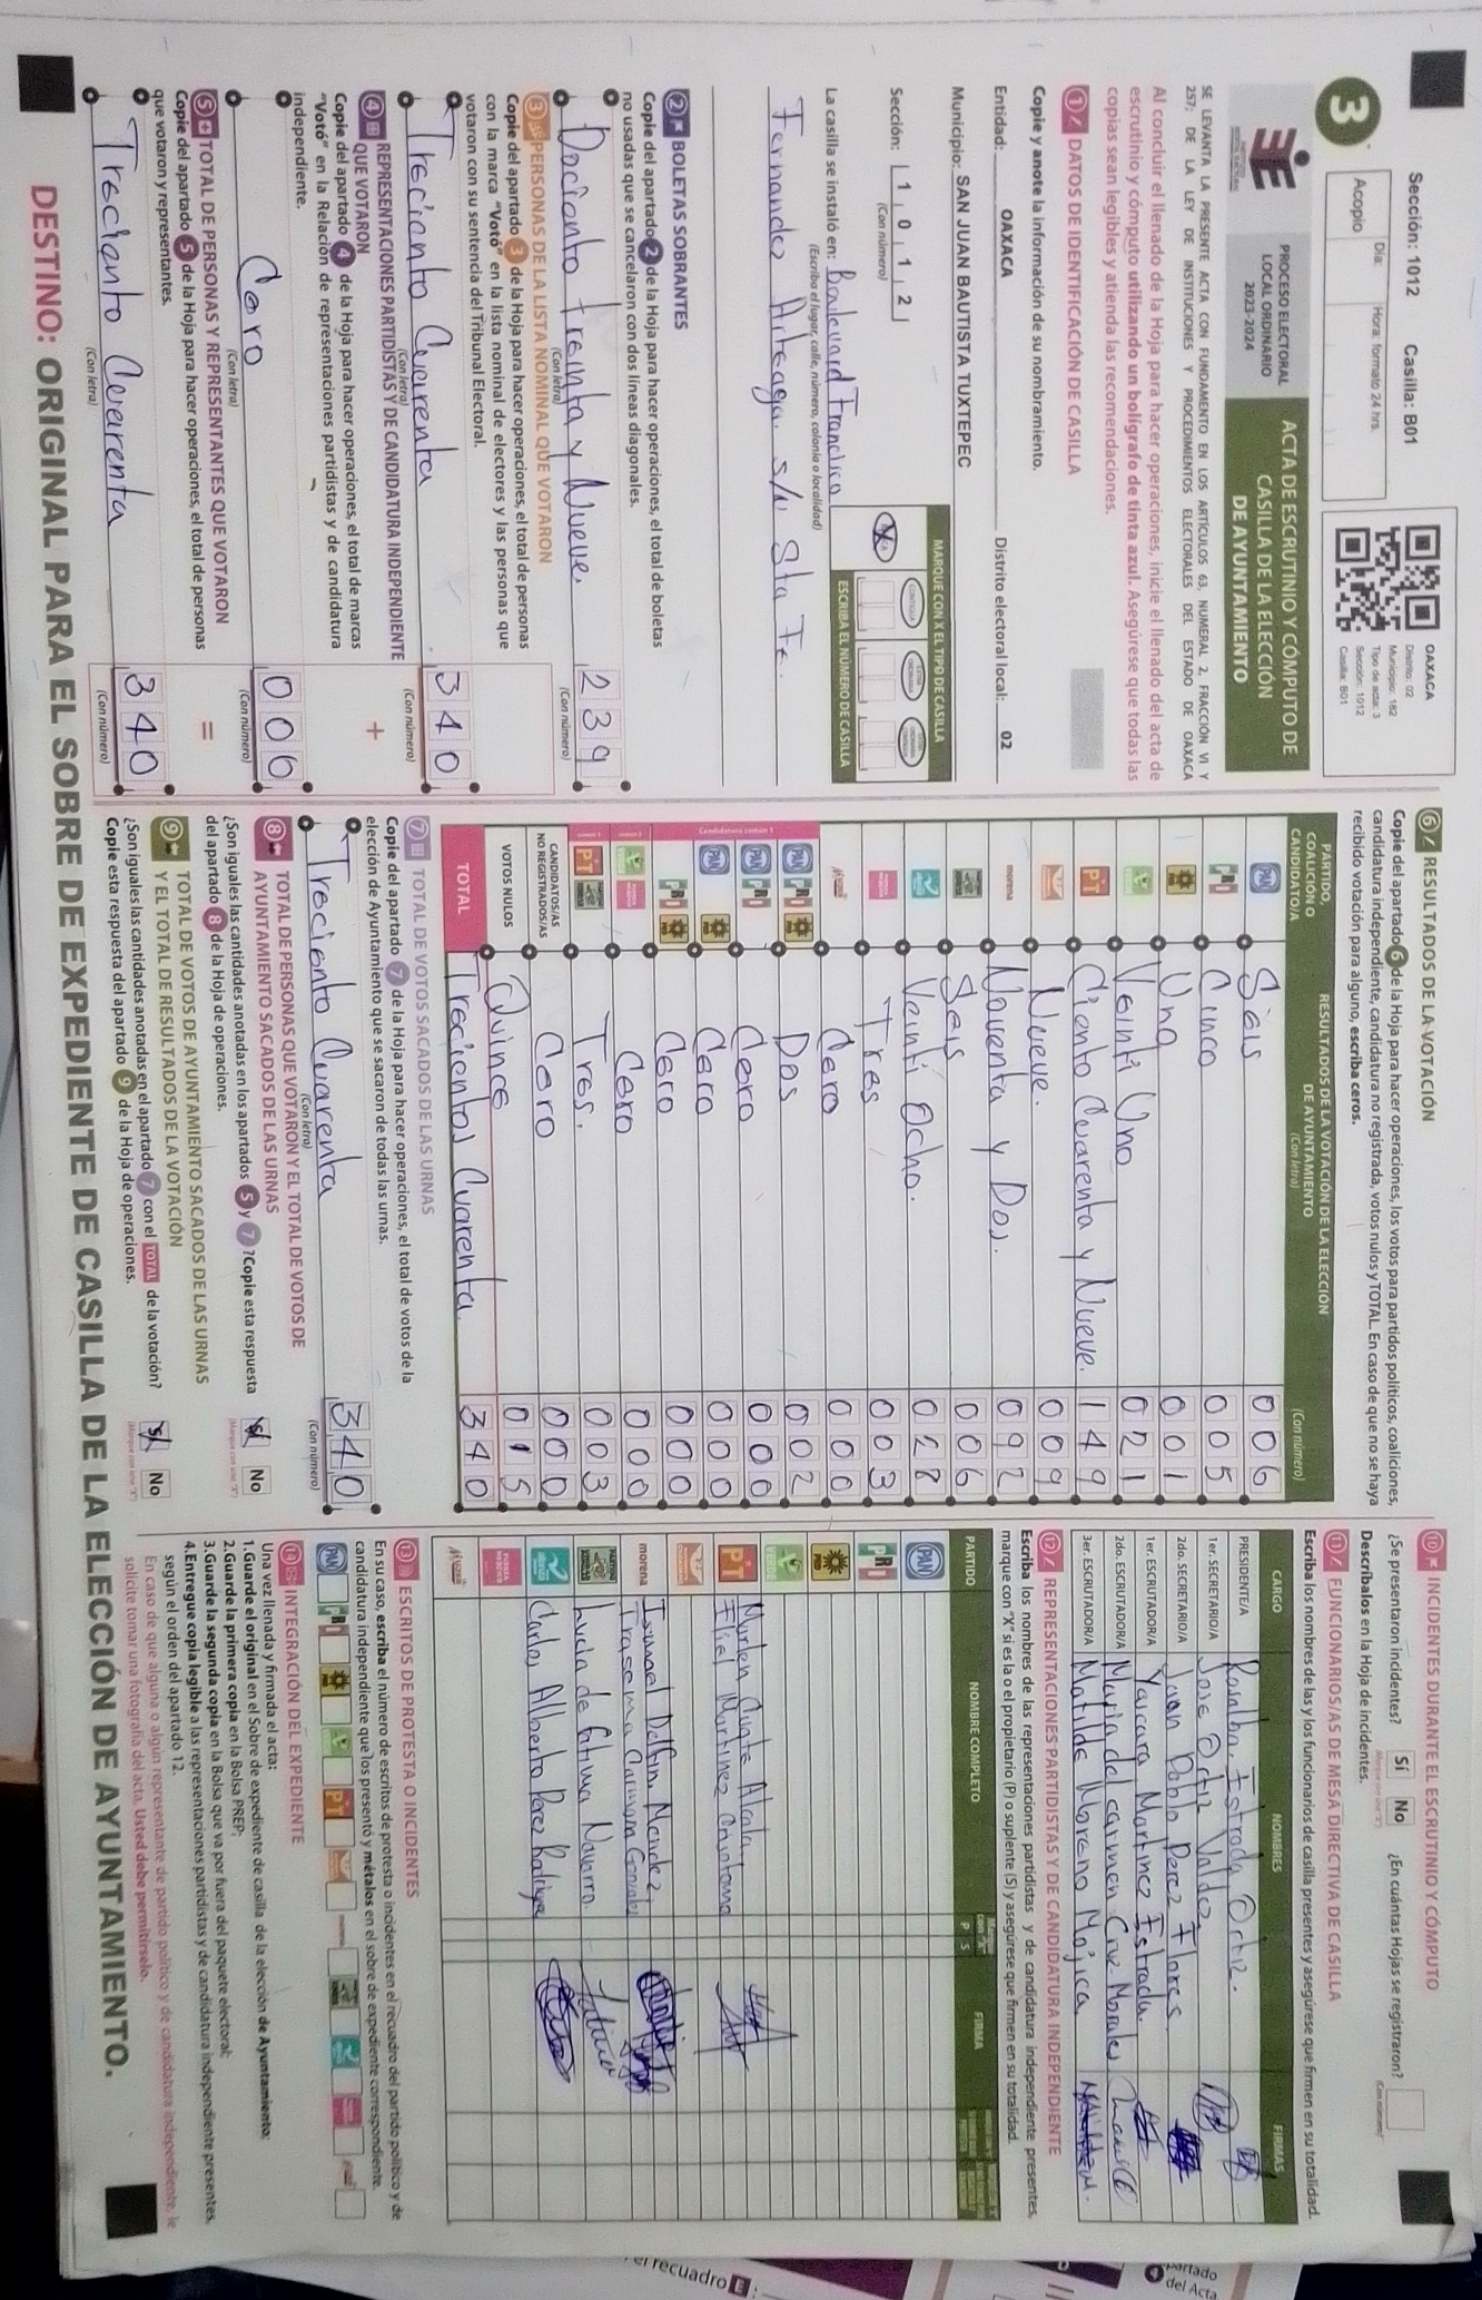 Sección: 1012 Casilla: B01
3
Día: Hora: formato 24 hrs.
Acopio
OAXACA
Distrito: 02
Municipio: 182
Tipo de acta: 3
Sección: 1012
Casilla: B01
PROCESO ELECTORAL
LOCAL ORDINARIO
2023-2024
ACTA DE ESCRUTINIO Y CÓMPUTO DE
CASILLA DE LA ELECCIÓN
DE AYUNTAMIENTO
SE LEVANTA LA PRESENTE ACTA CON FUNDAMENTO EN LOS ARTÍCULOS 63, NUMERAL 2, FRACCIÓN VI Y
257; DE LA LEY DE INSTITUCIONES Y PROCEDIMIENTOS ELECTORALES DEL ESTADO DE OAXACA
Al concluir el llenado de la Hoja para hacer operaciones, inicie el llenado del acta de
escrutinio y cómputo utilizando un bolígrafo de tinta azul. Asegúrese que todas las
copias sean legibles y atienda las recomendaciones.
1 DATOS DE IDENTIFICACIÓN DE CASILLA
Copie y anote la información de su nombramiento.
Entidad: OAXACA Distrito electoral local: 02
Municipio: SAN JUAN BAUTISTA TUXTEPEC
MARQUE CON X EL TIPO DE CASILLA
Sección: 1 0 1 2
(Con número)
ESCRIBA EL NÚMERO DE CASILLA
La casilla se instaló en: Boulevard Francisco
(Escriba el lugar, calle, número, colonia o localidad)
Fernandez Arteaga. s/n Sta Fe.
2 BOLETAS SOBRANTES
Copie del apartado 2 de la Hoja para hacer operaciones, el total de boletas
no usadas que se cancelaron con dos líneas diagonales.
Dociento treinta y Nueve. 239
(Con letra) (Con número)
3 PERSONAS DE LA LISTA NOMINAL QUE VOTARON
Copie del apartado 3 de la Hoja para hacer operaciones, el total de personas
con la marca "Votó" en la lista nominal de electores y las personas que
votaron con su sentencia del Tribunal Electoral.
Treciento Cuarenta 340
(Con letra) (Con número)
4 REPRESENTACIONES PARTIDISTAS Y DE CANDIDATURA INDEPENDIENTE
QUE VOTARON +
Copie del apartado 4 de la Hoja para hacer operaciones, el total de marcas
"Votó" en la Relación de representaciones partidistas y de candidatura
independiente.
Cero 000
(Con letra) (Con número)
5 TOTAL DE PERSONAS Y REPRESENTANTES QUE VOTARON =
Copie del apartado 5 de la Hoja para hacer operaciones, el total de personas
que votaron y representantes.
Treciento Cuarenta 340
(Con letra) (Con número)
6 RESULTADOS DE LA VOTACIÓN
Copie del apartado 6 de la Hoja para hacer operaciones, los votos para partidos políticos, coaliciones,
candidatura independiente, candidatura no registrada, votos nulos y TOTAL. En caso de que no se haya
recibido votación para alguno, escriba ceros.
PARTIDO,
COALICIÓN O
CANDIDATO/A
RESULTADOS DE LA VOTACIÓN DE LA ELECCIÓN
DE AYUNTAMIENTO
(Con letra) (Con número)
PAN Seis 006
PRI Cinco 005
PRD Uno 001
VERDE Veinti Uno 021
PT Ciento Cuarenta y Nueve. 149
Nueve. 009
morena Noventa y Dos. 092
Seis 006
Veinti Ocho. 028
Tres 003
Cero 000
Candidatura común 1
PAN PRI PRD Dos 002
PAN PRI Cero 000
PAN PRD Cero 000
PRI PRD Cero 000
Cero 000
PT Tres. 003
CANDIDATOS/AS
NO REGISTRADOS/AS Cero 000
VOTOS NULOS Quince 015
TOTAL Trecientos Cuarenta. 340
7 TOTAL DE VOTOS SACADOS DE LAS URNAS
Copie del apartado 7 de la Hoja para hacer operaciones, el total de votos de la
elección de Ayuntamiento que se sacaron de todas las urnas.
Treciento Cuarenta 340
(Con letra) (Con número)
8 TOTAL DE PERSONAS QUE VOTARON Y EL TOTAL DE VOTOS DE
AYUNTAMIENTO SACADOS DE LAS URNAS
¿Son iguales las cantidades anotadas en los apartados 5 y 7 ? Copie esta respuesta
del apartado 8 de la Hoja de operaciones.
Sí No
(Marque con una "X")
9 TOTAL DE VOTOS DE AYUNTAMIENTO SACADOS DE LAS URNAS
Y EL TOTAL DE RESULTADOS DE LA VOTACIÓN
¿Son iguales las cantidades anotadas en el apartado 7 con el TOTAL de la votación?
Copie esta respuesta del apartado 9 de la Hoja de operaciones.
Sí No
(Marque con una "X")
10 INCIDENTES DURANTE EL ESCRUTINIO Y CÓMPUTO
¿Se presentaron incidentes? Sí No ¿En cuántas Hojas se registraron?
(Marque con una "X") (Con número)
Descríbalos en la Hoja de incidentes.
11 FUNCIONARIOS/AS DE MESA DIRECTIVA DE CASILLA
Escriba los nombres de las y los funcionarios de casilla presentes y asegúrese que firmen en su totalidad.
CARGO NOMBRES FIRMAS
PRESIDENTE/A Rosalba. Estrada Ortiz.
1er. SECRETARIO/A Jose Ortiz Valdez
2do. SECRETARIO/A Juan Pablo Perez Flores
1er. ESCRUTADOR/A Yaicara Martinez Estrada.
2do. ESCRUTADOR/A Maria del carmen Cruz Morales
3er. ESCRUTADOR/A Matilde Moreno Mojica
12 REPRESENTACIONES PARTIDISTAS Y DE CANDIDATURA INDEPENDIENTE
Escriba los nombres de las representaciones partidistas y de candidatura independiente presentes,
marque con "X" si es la o el propietario (P) o suplente (S) y asegúrese que firmen en su totalidad.
PARTIDO NOMBRE COMPLETO P S FIRMA
PAN
PRI
PRD
VERDE Mirlen Zugta Alcala
PT Eliel Martinez Cristomo
morena Ismael Delfin Mendez
Carmona Gonzalez
Lucia de fatima Navarro.
Carlos Alberto Perez Rodriguez
13 ESCRITOS DE PROTESTA O INCIDENTES
En su caso, escriba el número de escritos de protesta o incidentes en el recuadro del partido político y de
candidatura independiente que los presentó y métalos en el sobre de expediente correspondiente.
14 INTEGRACIÓN DEL EXPEDIENTE
Una vez llenada y firmada el acta:
1.Guarde el original en el Sobre de expediente de casilla de la elección de Ayuntamiento;
2.Guarde la primera copia en la Bolsa PREP;
3.Guarde la segunda copia en la Bolsa que va por fuera del paquete electoral;
4.Entregue copia legible a las representaciones partidistas y de candidatura independiente presentes,
según el orden del apartado 12.
En caso de que alguna o algún representante de partido político y de candidatura independiente, le
solicite tomar una fotografía del acta. Usted debe permitírselo.
DESTINO: ORIGINAL PARA EL SOBRE DE EXPEDIENTE DE CASILLA DE LA ELECCIÓN DE AYUNTAMIENTO.
del Acta
el recuadro E :